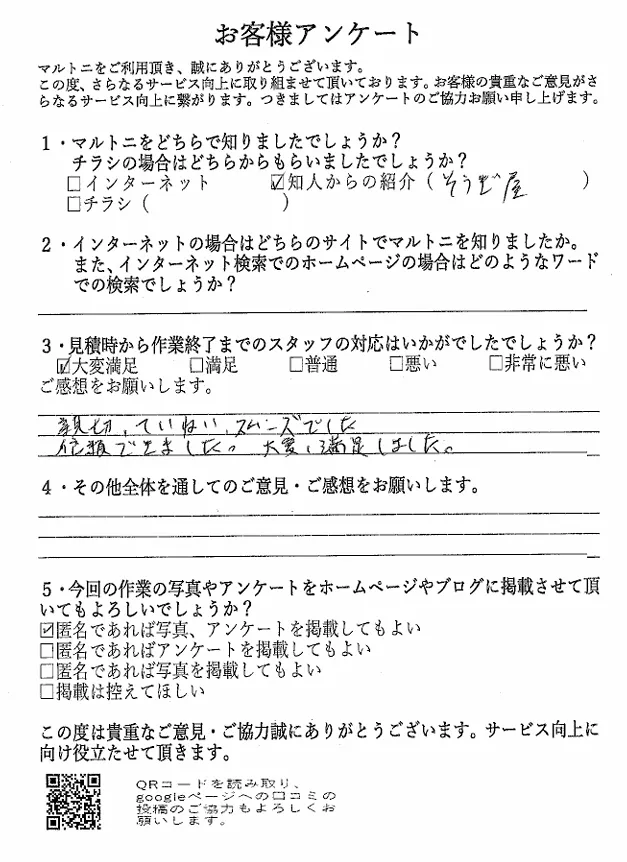 お客様アンケート
マルトニをご利用頂き、誠にありがとうございます。
この度、さらなるサービス向上に取り組ませて頂いております。お客様の貴重なご意見がさ
らなるサービス向上に繋がります。つきましてはアンケートのご協力お願い申し上げます。
1・マルトニをどちらで知りましたでしょうか？
チラシの場合はどちらからもらいましたでしょうか？
□インターネット ☑知人からの紹介（そうじ屋）
□チラシ（ ）
2・インターネットの場合はどちらのサイトでマルトニを知りましたか。
また、インターネット検索でのホームページの場合はどのようなワード
での検索でしょうか？
3・見積時から作業終了までのスタッフの対応はいかがでしたでしょうか？
☑大変満足 □満足 □普通 □悪い □非常に悪い
ご感想をお願いします。
親切、ていねい、スムーズでした
信頼できました。大変、満足しました。
4・その他全体を通してのご意見・ご感想をお願いします。
5・今回の作業の写真やアンケートをホームページやブログに掲載させて頂
いてもよろしいでしょうか？
☑匿名であれば写真、アンケートを掲載してもよい
□匿名であればアンケートを掲載してもよい
□匿名であれば写真を掲載してもよい
□掲載は控えてほしい
この度は貴重なご意見・ご協力誠にありがとうございます。サービス向上に
向け役立たせて頂きます。
QRコードを読み取り、
googleページへの口コミの
投稿のご協力もよろしくお
願いします。